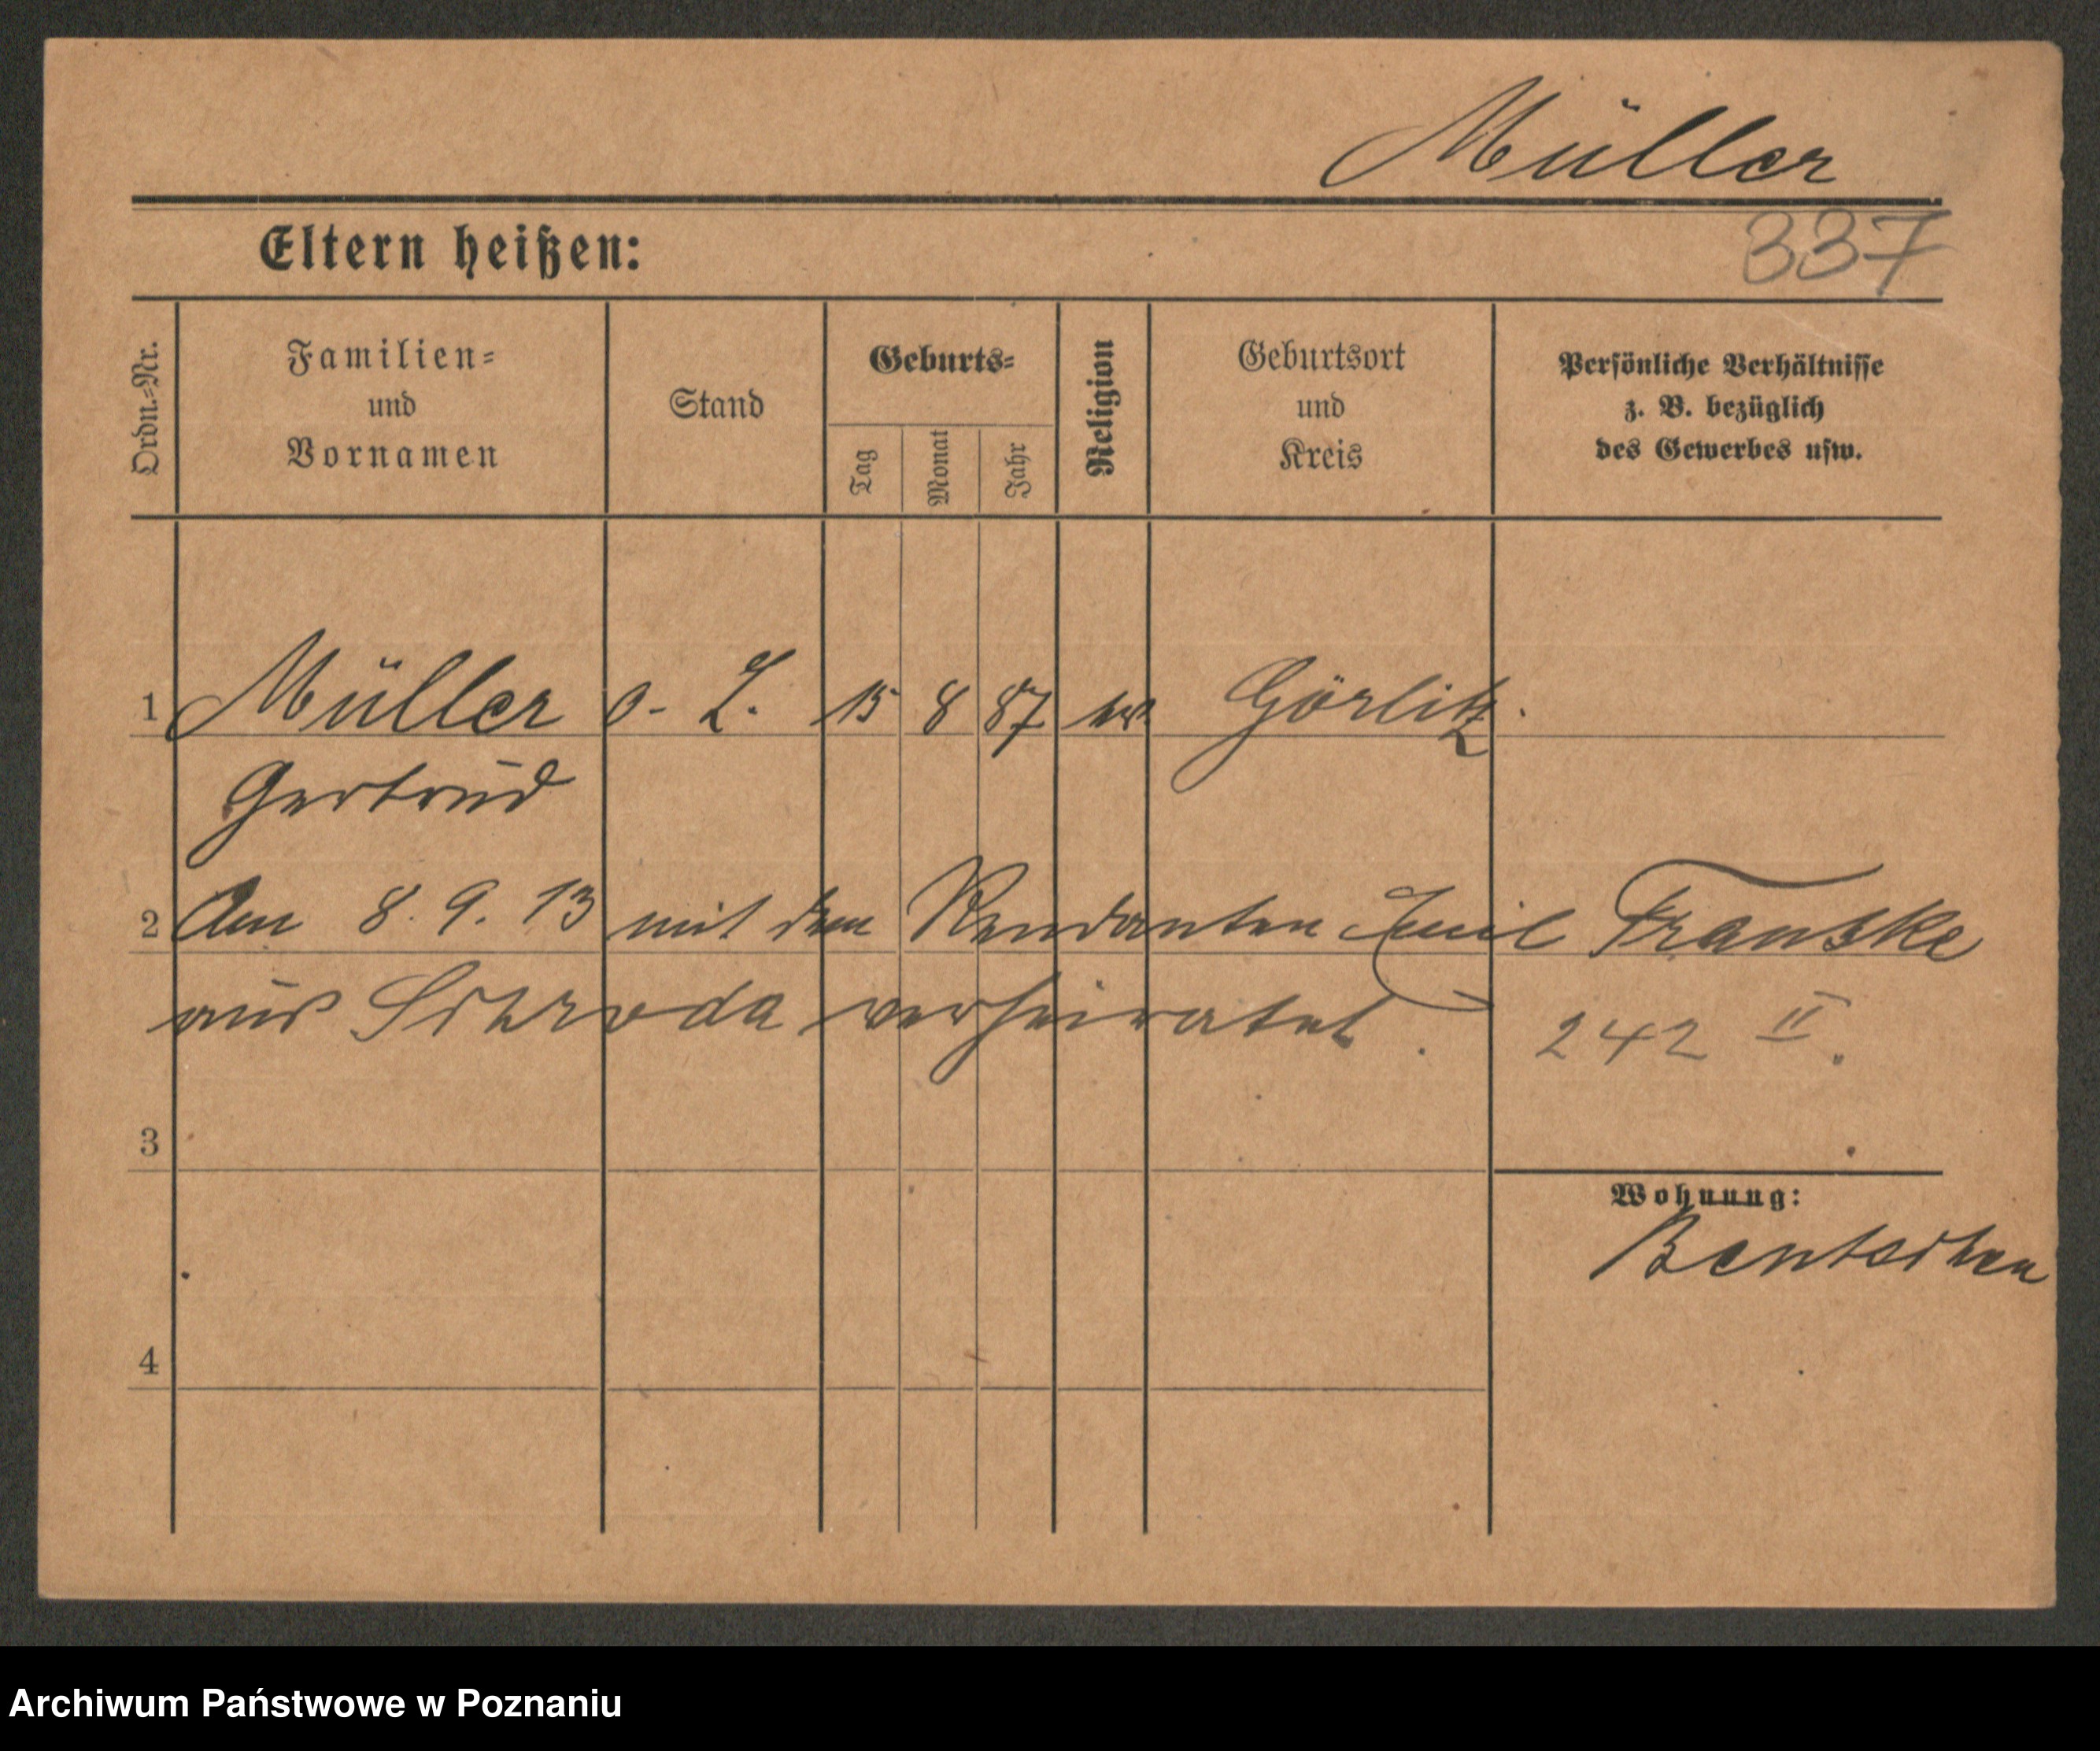 Müller
Eltern heißen:
337
Ordn.=Nr.
Familien=
und
Vornamen
Stand
Geburts=
Tag
Monat
Jahr
Religion
Geburtsort
und
Kreis
Persönliche Verhältnisse
z. B. bezüglich
des Gewerbes usw.
1 Müller o. T. 15 8 87 Görlitz.
Gertrud
2 Am 8. 9. 13 mit dem Rendanten Emil Franske
aus Schroda verheiratet. 242 II.
3
Wohnung:
Bentschen
4
Archiwum Państwowe w Poznaniu